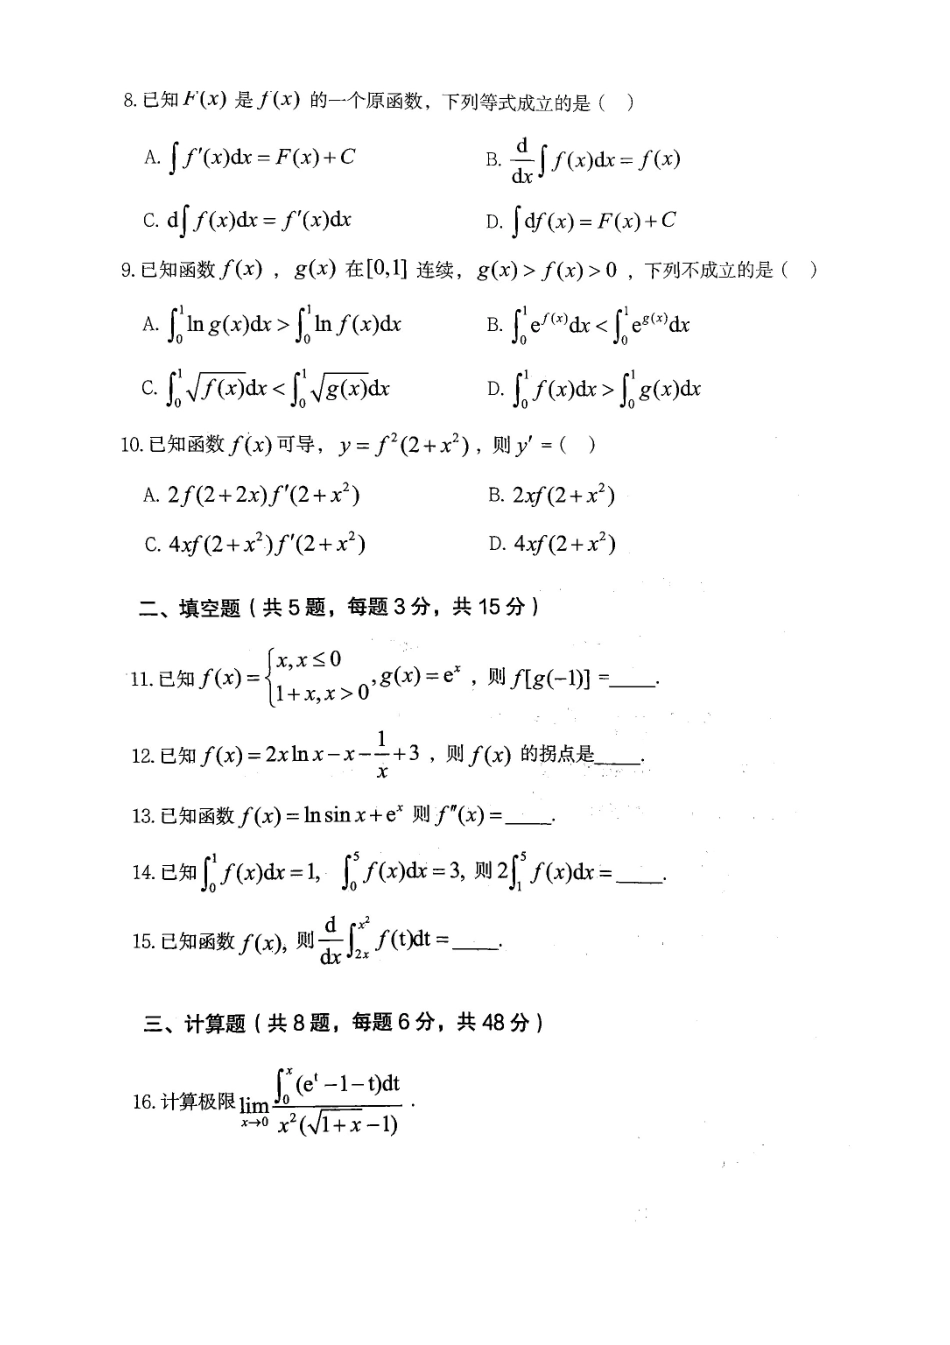 8.已知F(x) 是 f(x) 的一个原函数，下列等式成立的是（ ）
A. ∫f′(x)dx = F(x)+C B. d/dx ∫f(x)dx = f(x)
C. d∫f(x)dx = f′(x)dx D. ∫df(x) = F(x)+C
9.已知函数 f(x) ，g(x) 在[0,1] 连续，g(x) > f(x) > 0 ，下列不成立的是（ ）
A. ∫₀¹ ln g(x)dx > ∫₀¹ ln f(x)dx B. ∫₀¹ e^{f(x)}dx < ∫₀¹ e^{g(x)}dx
C. ∫₀¹ √f(x)dx < ∫₀¹ √g(x)dx D. ∫₀¹ f(x)dx > ∫₀¹ g(x)dx
10.已知函数 f(x) 可导，y = f²(2+x²)，则 y′ =（ ）
A. 2f(2+2x)f′(2+x²) B. 2xf(2+x²)
C. 4xf(2+x²)f′(2+x²) D. 4xf(2+x²)
二、填空题（共 5 题，每题 3 分，共 15 分）
11.已知 f(x) = {x, x ≤ 0; 1+x, x > 0 , g(x) = eˣ ，则 f[g(-1)] =____.
12.已知 f(x) = 2x ln x − x − 1/x + 3 ，则 f(x) 的拐点是____.
13.已知函数 f(x) = ln sin x + eˣ 则 f″(x) =____.
14.已知 ∫₀¹ f(x)dx = 1, ∫₀⁵ f(x)dx = 3, 则 2∫₁⁵ f(x)dx =____.
15.已知函数 f(x), 则 d/dx ∫_{2x}^{x²} f(t)dt =____.
三、计算题（共 8 题，每题 6 分，共 48 分）
16.计算极限 lim_{x→0} ∫₀ˣ (eᵗ −1−t)dt / x²(√(1+x) −1) .